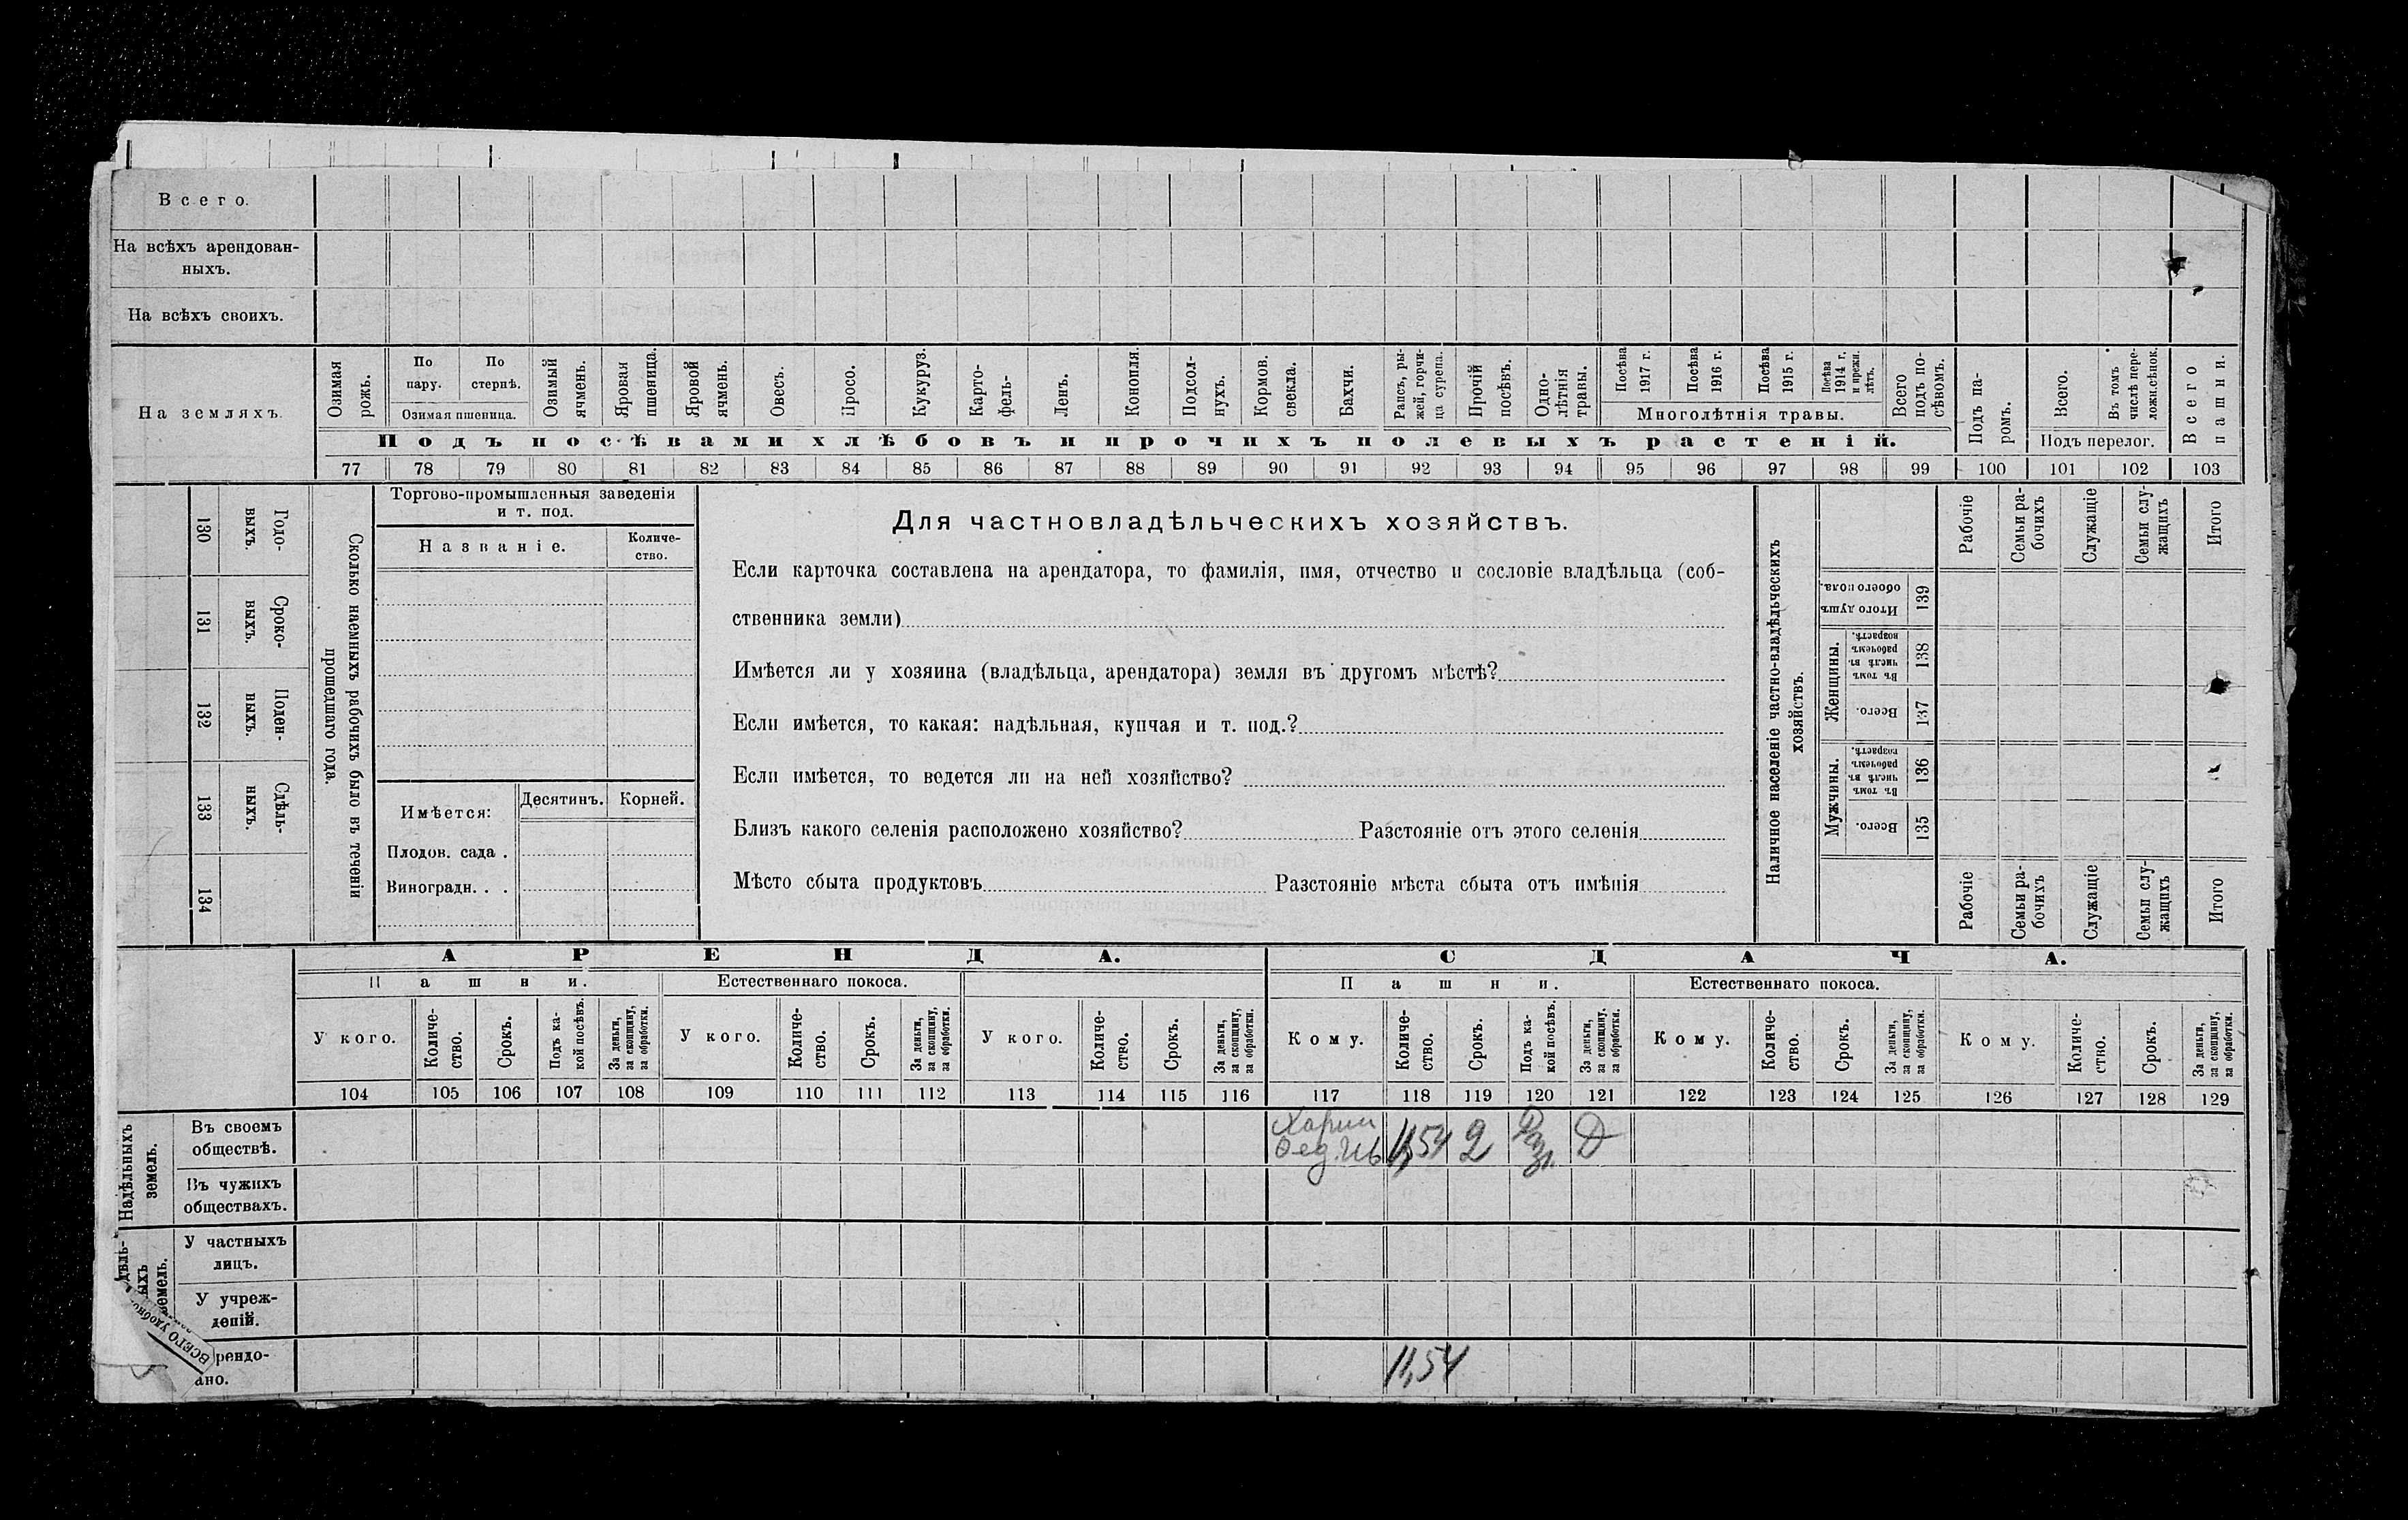 Всего.
На всѣхъ арендован-
ныхъ.
На всѣхъ своихъ.
На земляхъ.
Озимая рожь.
По пару.
По стернѣ.
Озимая пшеница.
Озимый ячмень.
Яровая пшеница.
Яровой ячмень.
Овесъ.
Просо.
Кукуруз.
Карто-
фель-
Ленъ.
Конопля.
Подсол-
нухъ.
Кормов. свекла.
Бахчи.
Рапсъ, ры-
жей, горчи-
ца сурепа.
Прочій посѣвъ.
Одно-
лѣтнія травы.
Посѣва 1917 г.
Посѣва 1916 г.
Посѣва 1915 г.
Посѣва 1914 г. и прежн. лѣтъ.
Многолѣтнія травы.
Всего подъ по-
сѣвомъ.
Подъ па-
ромъ.
Всего.
Въ томъ числѣ пере-
ложн.сѣнок.
Подъ перелог.
Всего пашни.
Подъ посѣвами хлѣбовъ и прочихъ полевыхъ растеній.
77 78 79 80 81 82 83 84 85 86 87 88 89 90 91 92 93 94 95 96 97 98 99 100 101 102 103
130 Годо-
выхъ.
131 Сроко-
выхъ.
132 Поден-
ныхъ.
133 Сдѣль-
ныхъ.
134
Сколько наемныхъ рабочихъ было въ теченіи
прошедшаго года.
Торгово-промышленныя заведенія
и т. под.
Названіе.
Количе-
ство.
Имѣется:
Десятинъ.
Корней.
Плодов. сада .
Виноградн. . .
Для частновладѣльческихъ хозяйствъ.
Если карточка составлена на арендатора, то фамилія, имя, отчество и сословіе владѣльца (соб-
ственника земли)
Имѣется ли у хозяина (владѣльца, арендатора) земля въ другомъ мѣстѣ?
Если имѣется, то какая: надѣльная, купчая и т. под.?
Если имѣется, то ведется ли на ней хозяйство?
Близъ какого селенія расположено хозяйство? Разстояніе отъ этого селенія
Мѣсто сбыта продуктовъ Разстояніе мѣста сбыта отъ имѣнія
Наличное населеніе частно-владѣльческихъ
хозяйствъ.
Рабочіе
Семьи ра-
бочихъ
Служащіе
Семьи слу-
жащихъ
Итого
Итого душъ обоего пола.
139
Женщины.
Въ томъ числѣ въ рабочемъ возрастѣ.
138
Всего.
137
Мужчины.
Въ томъ числѣ въ рабочемъ возрастѣ.
136
Всего.
135
Рабочіе
Семьи ра-
бочихъ
Служащіе
Семьи слу-
жащихъ
Итого
АРЕНДА.
СДАЧА.
Пашни.
Естественнаго покоса.
Пашни.
Естественнаго покоса.
У кого.
Количе-
ство.
Срокъ.
Подъ ка-
кой посѣвъ.
За деньги,
за скопщину,
за обработки.
У кого.
Количе-
ство.
Срокъ.
За деньги,
за скопщину,
за обработки.
У кого.
Количе-
ство.
Срокъ.
За деньги,
за скопщину,
за обработки.
Кому.
Количе-
ство.
Срокъ.
Подъ ка-
кой посѣвъ.
За деньги,
за скопщину,
за обработки.
Кому.
Количе-
ство.
Срокъ.
За деньги,
за скопщину,
за обработки.
Кому.
Количе-
ство.
Срокъ.
За деньги,
за скопщину,
за обработки.
104 105 106 107 108 109 110 111 112 113 114 115 116 117 118 119 120 121 122 123 124 125 126 127 128 129
Надѣльныхъ
земель.
Въ своемъ
обществѣ.
Ѳед. Ив 11,54 2 Д
Въ чужихъ
обществахъ.
дѣль-
ыхъ
земель.
У частныхъ
лицъ.
У учреж-
деній.
ВСЕГО удобно
рендо-
ано.
11,54